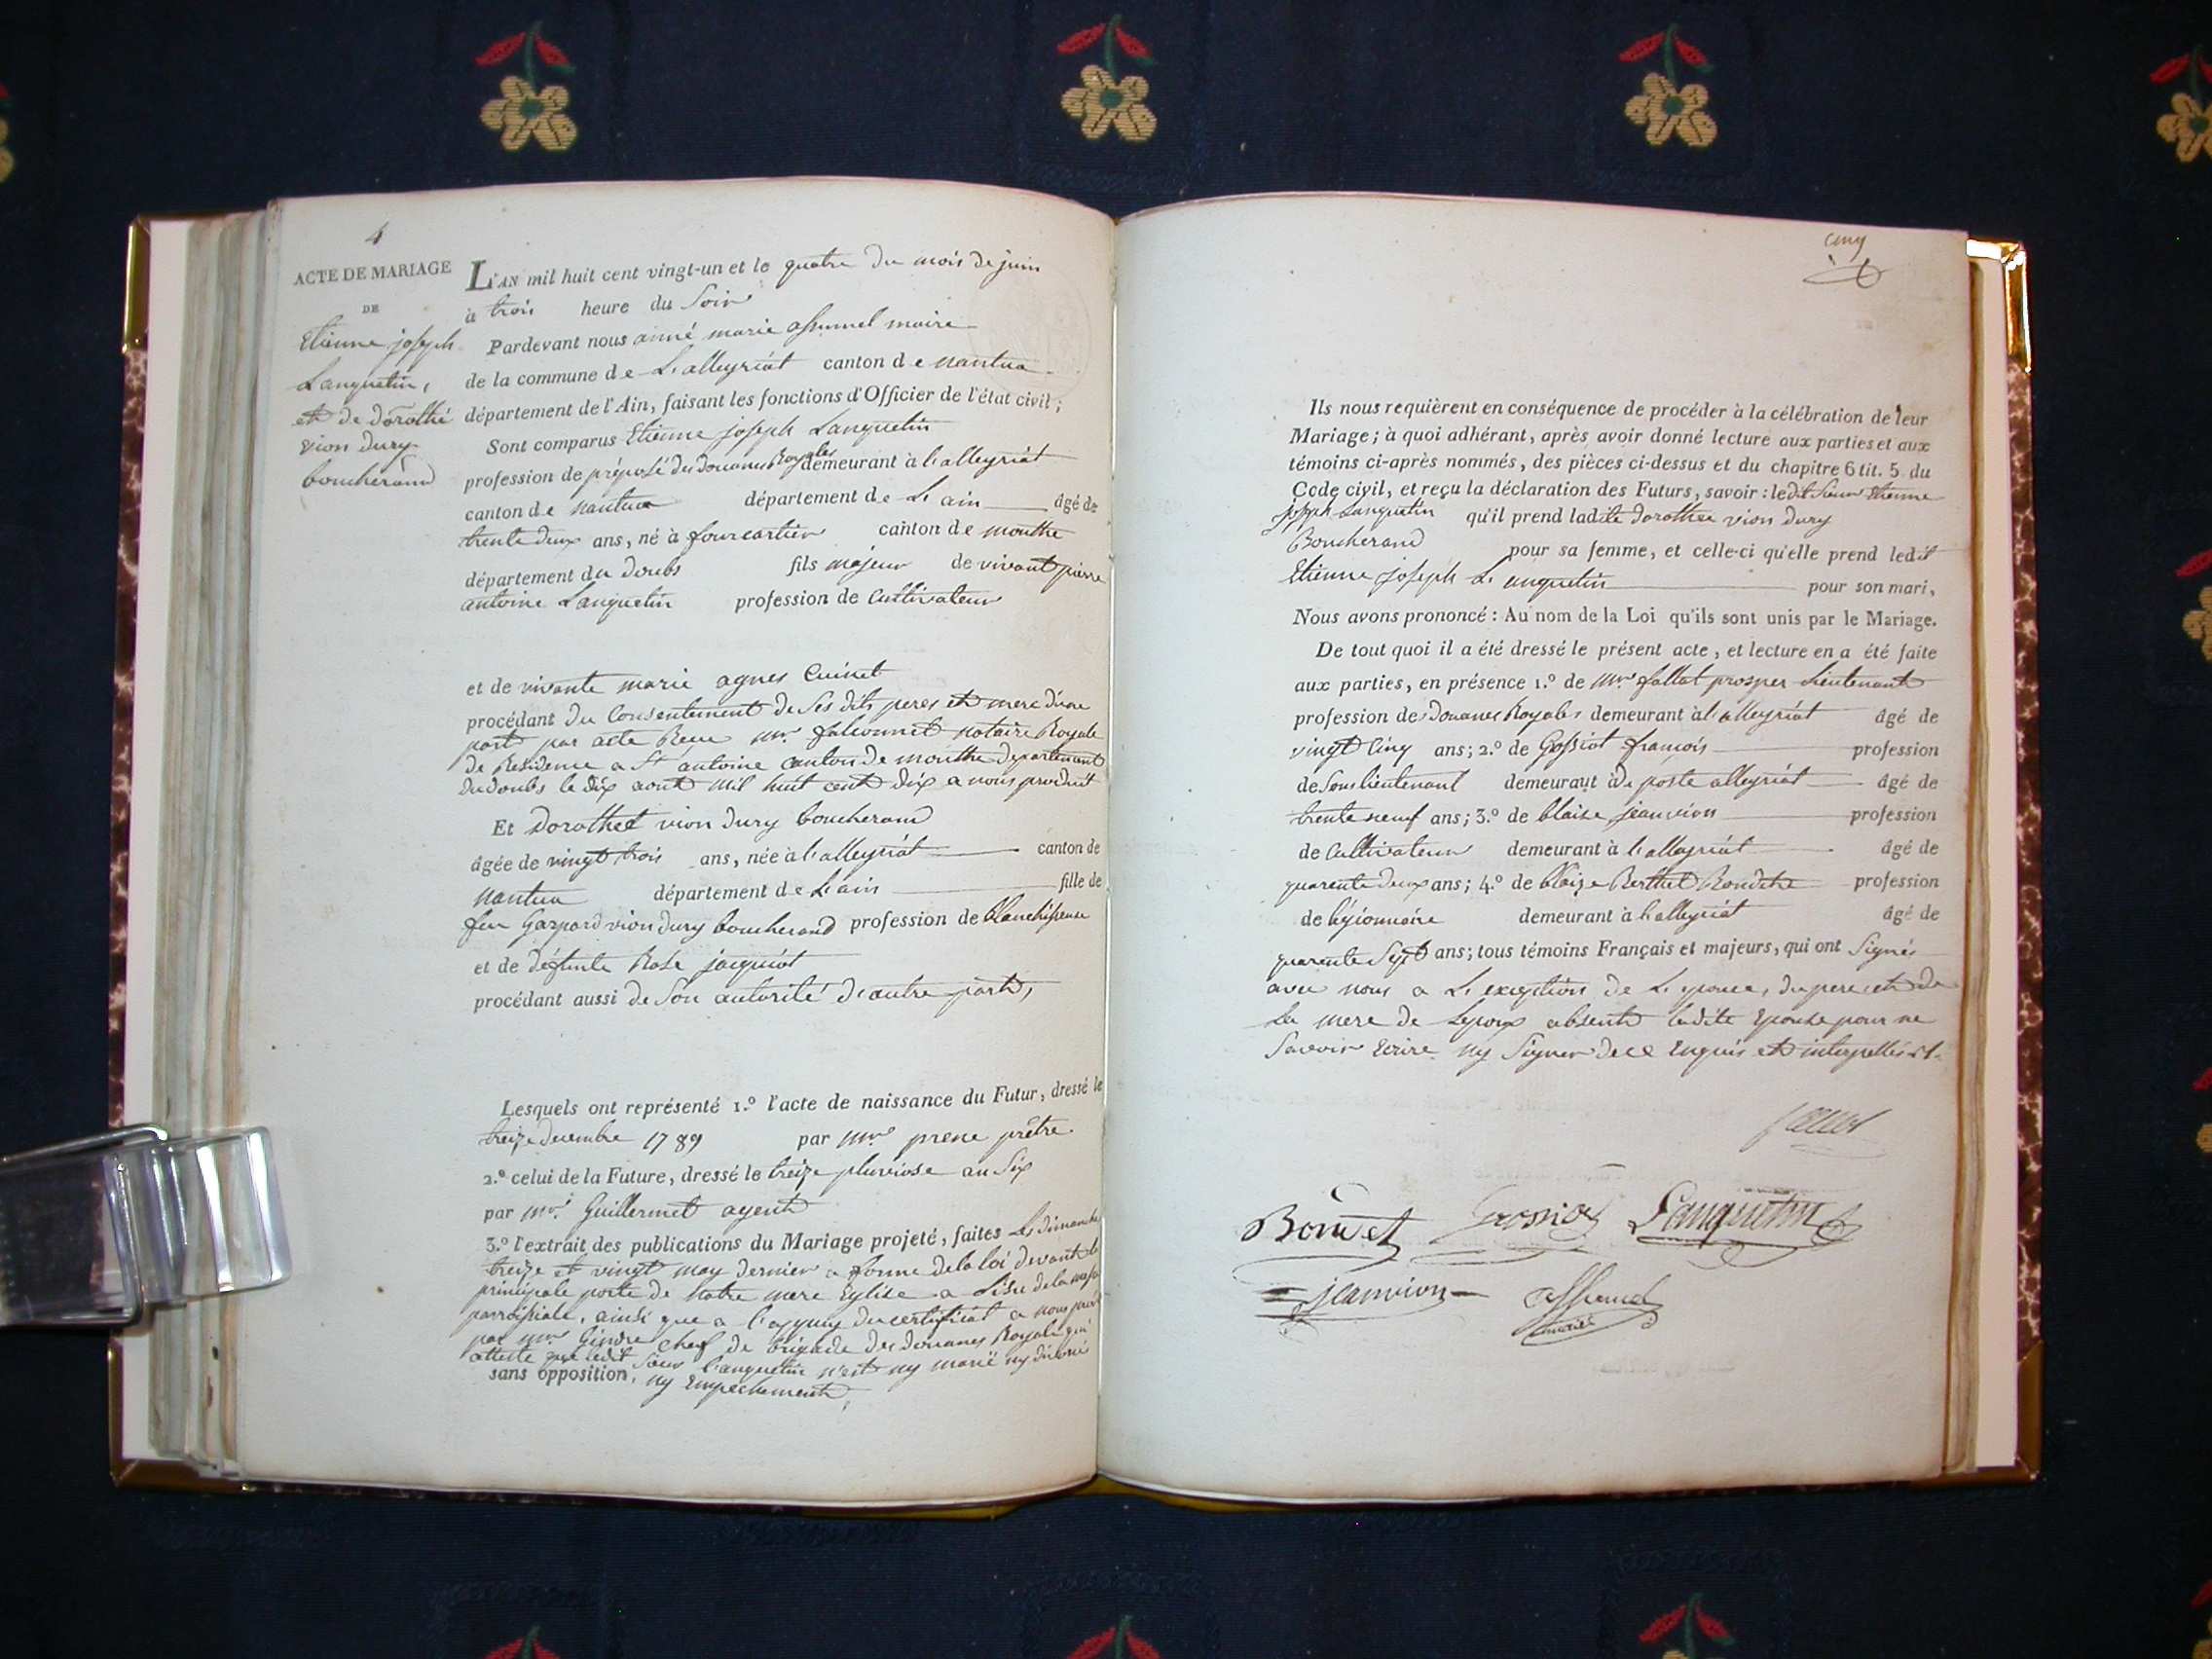 4
ACTE DE MARIAGE
DE
Etienne joseph
Languetin,
et de dorothé
vion dury
boucherand
L'AN mil huit cent vingt-un et le quatre du mois de juin
à trois heure du Soir
Pardevant nous aimé marie assumel maire
de la commune de L'alleyriat canton de nantua
département de l'Ain, faisant les fonctions d'Officier de l'état civil;
Sont comparus Etienne joseph Languetin
profession de préposé des douanes Royales demeurant à l'alleyriat
canton de nantua département de L'ain âgé de
trente deux ans, né à fourcartier canton de mouthe
département du doubs fils majeur de vivant pierre
antoine Languetin profession de Cultivateur
et de vivante marie agnes Cuinet
procédant du Consentement de Ses dits peres et mere d'une
part par acte Recu mr. falconnet notaire Royale
de Residence a St antoine canton de mouthe departement
du doubs le dix aout mil huit cent dix a nous produit
Et Dorothee vion dury boucherand
âgée de vingt trois ans, née à l'alleyriat canton de
nantua département de L'ain fille de
feu Gaspard vion dury boucherand profession de blanchisseur
et de défunte Rose jacquiot
procédant aussi de Son autorité d'autre part,
Lesquels ont représenté 1.º l'acte de naissance du Futur, dressé le
treize decembre 1789 par mr. prene prêtre
2.º celui de la Future, dressé le treize pluviose an Six
par mr. Guillermet agent
3.º l'extrait des publications du Mariage projeté, faites Les dimanche
treize et vingt may dernier a forme de la loi devant la
principale porte de notre mere Eglise a L'isue de la messe
parroissiale, ainsi que a l'apuis du certificat a nous produit
par mr Gindre chef de brigade des douanes Royale qui
atteste que ledit Sieur languetin n'est ny marié ny divorcé
sans opposition, ny Empechement,
cinq
Ils nous requièrent en conséquence de procéder à la célébration de leur
Mariage; à quoi adhérant, après avoir donné lecture aux parties et aux
témoins ci-après nommés, des pièces ci-dessus et du chapitre 6 tit. 5 du
Code civil, et reçu la déclaration des Futurs, savoir: ledit Sieur Etienne
joseph Languetin qu'il prend ladite dorothee vion dury
Boucherand pour sa femme, et celle-ci qu'elle prend ledit
Etienne joseph Languetin pour son mari,
Nous avons prononcé: Au nom de la Loi qu'ils sont unis par le Mariage.
De tout quoi il a été dressé le présent acte, et lecture en a été faite
aux parties, en présence 1.º de mr. fallat prosper Lieutenant
profession des Douanes Royales demeurant à l'alleyriat âgé de
vingt Cinq ans; 2.º de Gossiot françois profession
de Sous lieutenant demeurant à du poste alleyriat âgé de
trente neuf ans; 3.º de blaise jeanvion profession
de Cultivateur demeurant à l'alleyriat âgé de
quarente deux ans; 4.º de blaise Berthet Bondette profession
de légionnaire demeurant à l'alleyriat âgé de
quarente Sept ans; tous témoins Français et majeurs, qui ont Signés
avec nous a L'exception de L'epouse, du pere et de
La mere de Lepoux absents ladite Epouse pour ne
Savoir Ecrire ny Signer de ce Enquis et interpellés
Gossiot Languetin
jeanvion assumel
maire